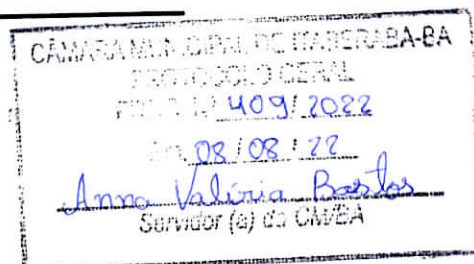 CÂMARA MUNICIPAL DE ITABERABA-BA
PROTOCOLO GERAL
409/2022
08/08/22
Anna Valéria Bastos
Servidor (a) da CM/BA